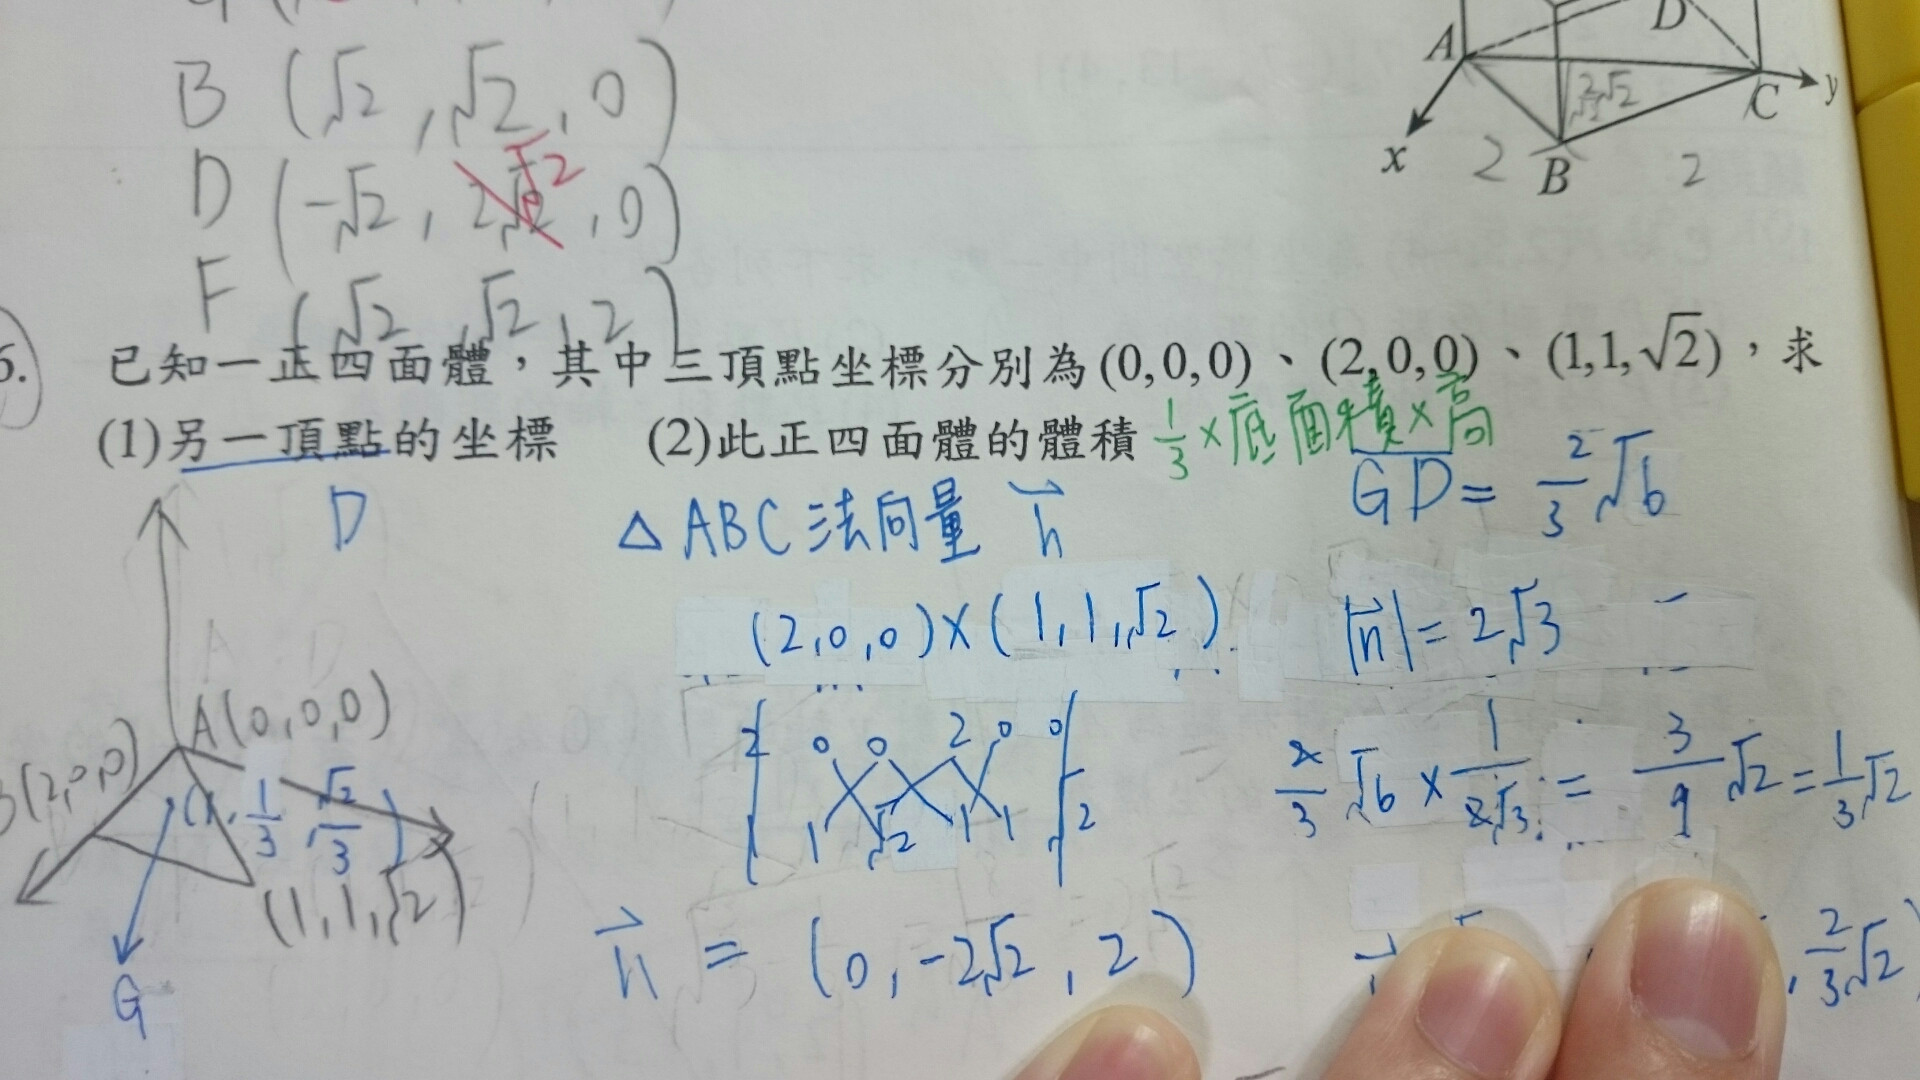 B (√2, √2, 0)
D (-√2, √2, 0)
F (√2, √2, 2)
A
D
C
y
x
2
B
2
已知一正四面體，其中三頂點坐標分別為(0,0,0)、(2,0,0)、(1,1,√2)，求
(1)另一頂點的坐標 (2)此正四面體的體積 1/3×底面積×高
D
GD = 2/3 √6
△ABC 法向量 n
(2,0,0)×(1,1,√2)
|n| = 2√3
A(0,0,0)
(2,0,0)
(1, 1/3, √2/3)
(1,1,√2)
G
2 0 0 2 0 0
1 1 √2 1 1 √2
2/3 √6 × 1/2√3 = 3/9 √2 = 1/3 √2
n = (0, -2√2, 2)
, 2/3 √2)